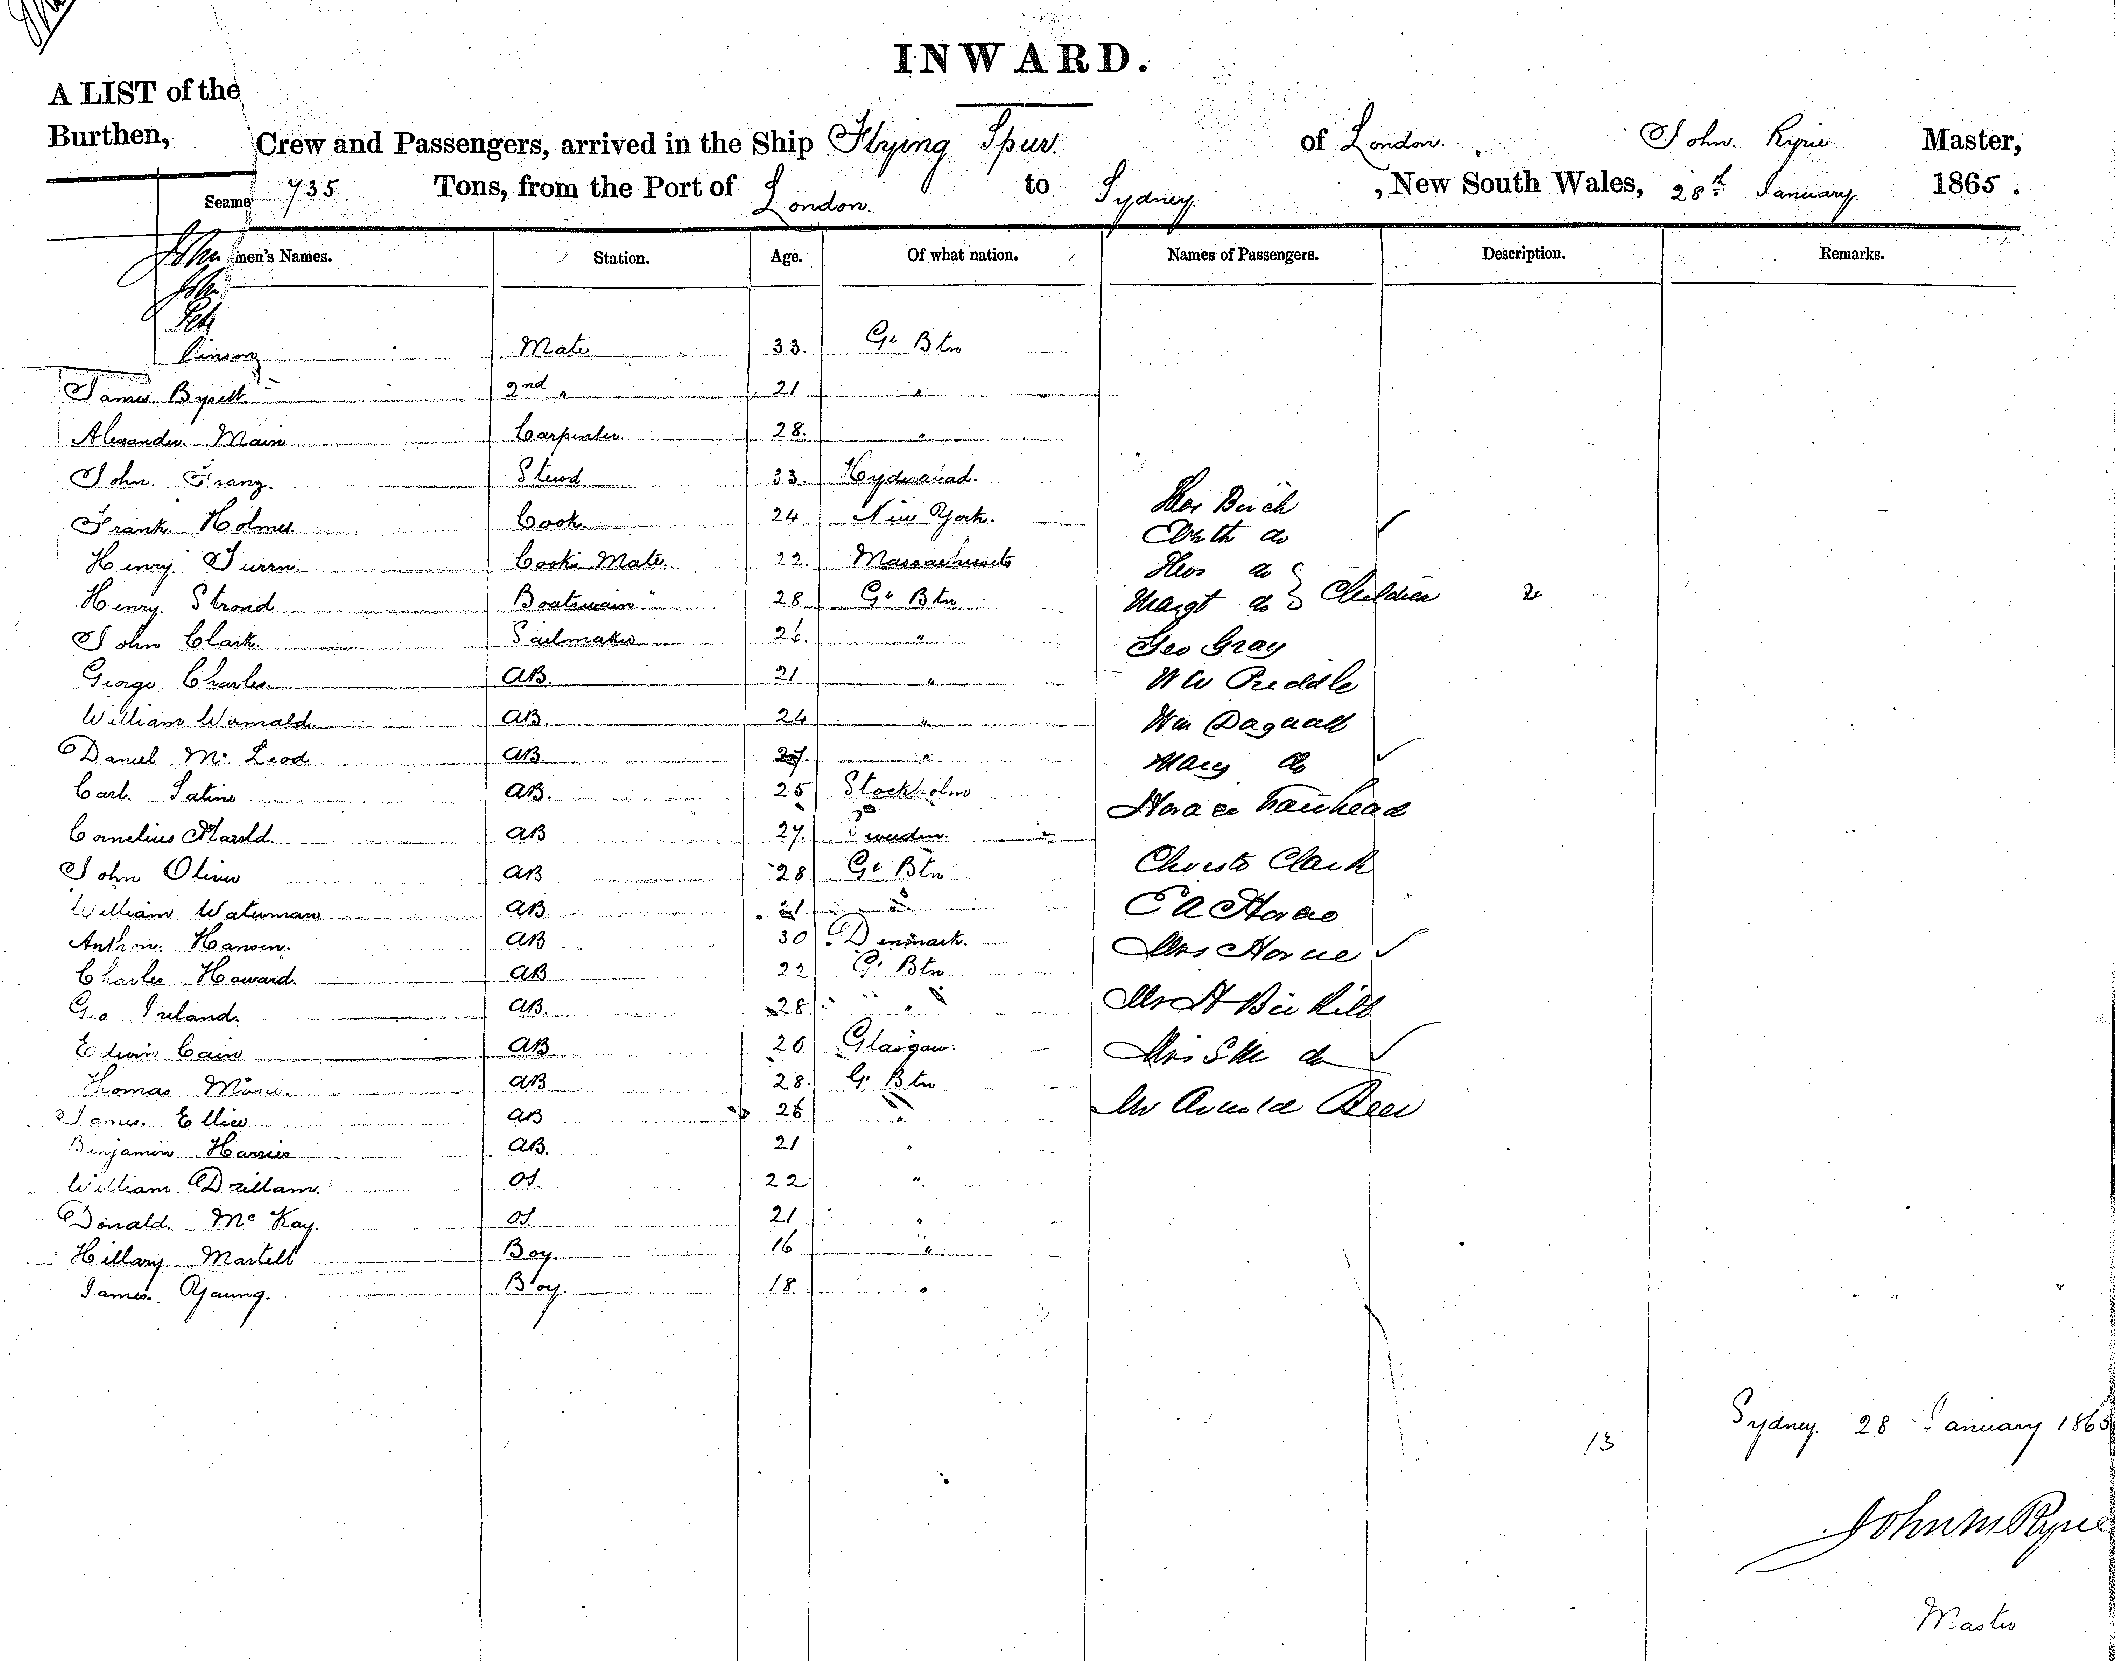 INWARD.
A LIST of the
Burthen,
Crew and Passengers, arrived in the Ship Flying Spur. of London. John. Ryrie Master,
735 Tons, from the Port of London. to Sydney , New South Wales, 28th January 1865.
Seame
men's Names. Station. Age. Of what nation. Names of Passengers. Description. Remarks.
John
John
Mate 33. Gt Btn
James 2nd " 21 "
Alexander Main Carpenter. 28. "
John. Franz. Stewd 33.
Frank Holmes Cook. 24 New York.
Henry Cooks Mate. 22. Massachusets
Henry Strond Boatswain 28 Gt Btn
John Clark. Sailmaker 26. "
George Charles AB. 21 "
William AB. 24 "
Daniel Mc Leod AB 27. "
Carl. AB. 25 Stockholm
Cornelius Harold AB 27. Sweden.
John Oliver AB 28 Gt Btn
William Waterman AB 21 "
Hansen. AB 30 Denmark.
Charles Howard. AB 22 Gt Btn
Geo Ireland. AB. 28 "
Edwin Cain AB 20 Glasgow.
Thomas AB 28. Gt Btn
James. AB 26 "
Benjamin Harries AB. 21 "
William OS. 22 "
Donald. Mc Kay. OS 21 "
Hillary Martell Boy. 16 "
James. Young. Boy. 18 "
Birch
do
do
Margt do Children 2
Geo Gray
Wm Dagnall
Mary do
Horace Fairhead
Clark
E A Horne
Mrs Horne
Mr H
Mrs S M do
Mr Arnold
13
Sydney. 28 January 1865
John M Ryrie
Master